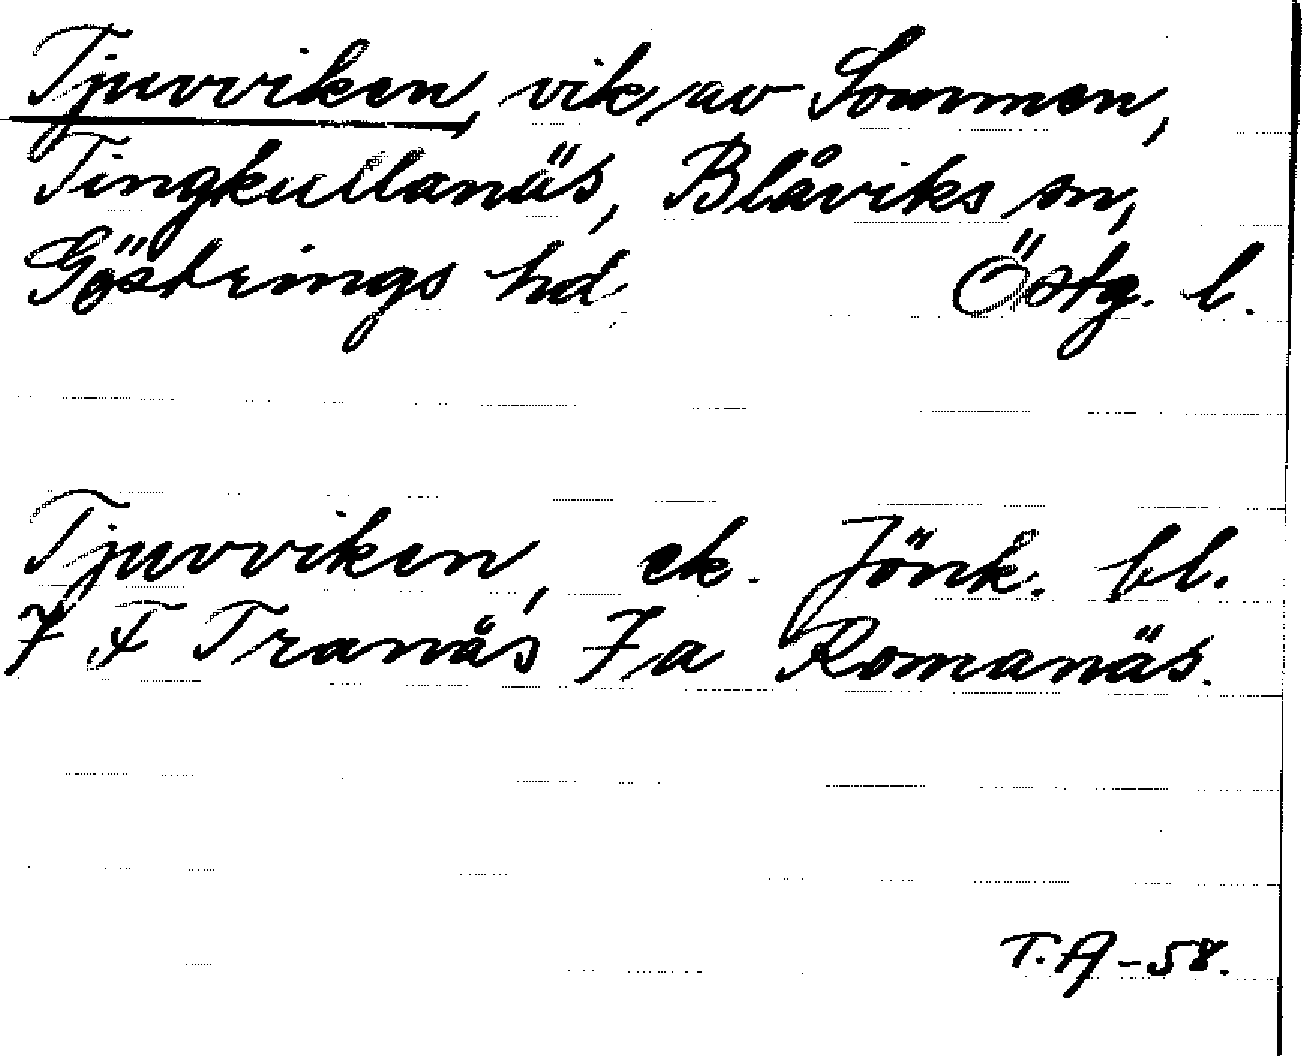 Tjuvviken, vik av Sommen,
Tingkullanäs, Blåviks sn,
Göstrings hd. Östg. l.
Tjuvviken, ek. Jönk. bl.
7 F Tranås 7 a Romanäs.
T.A-58.